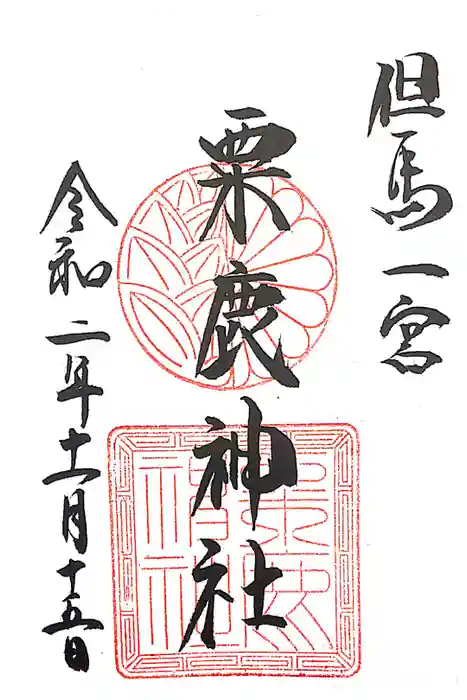 但馬一宮
粟鹿神社
令和二年十一月十五日